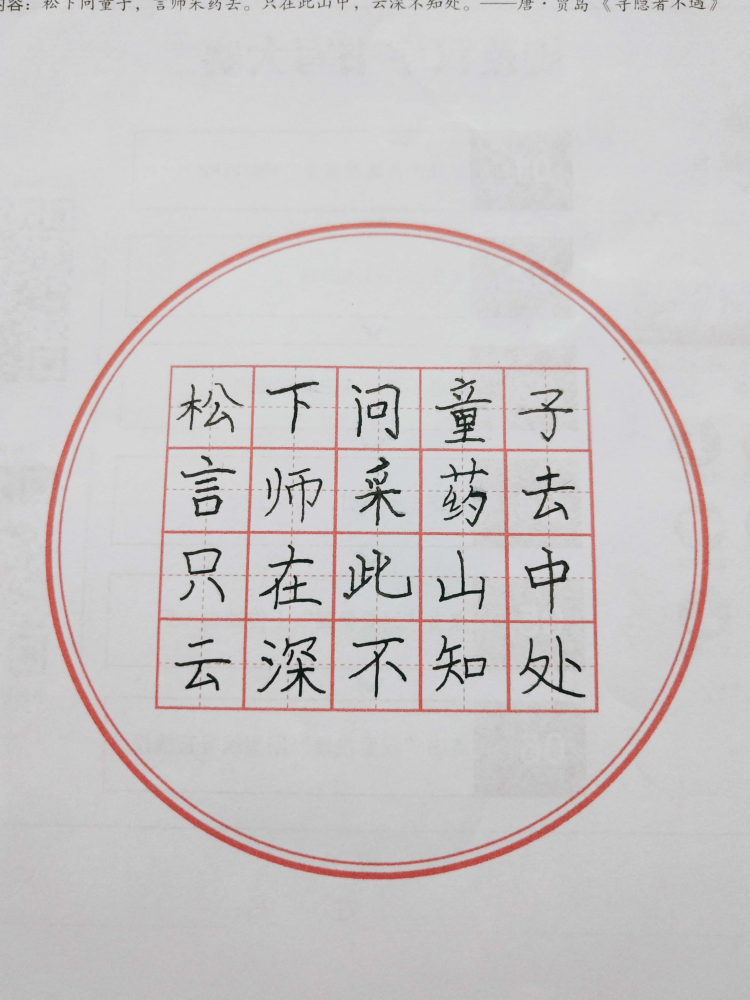 内容：松下问童子，言师采药去。只在此山中，云深不知处。——唐·贾岛《寻隐者不遇》
松下问童子
言师采药去
只在此山中
云深不知处